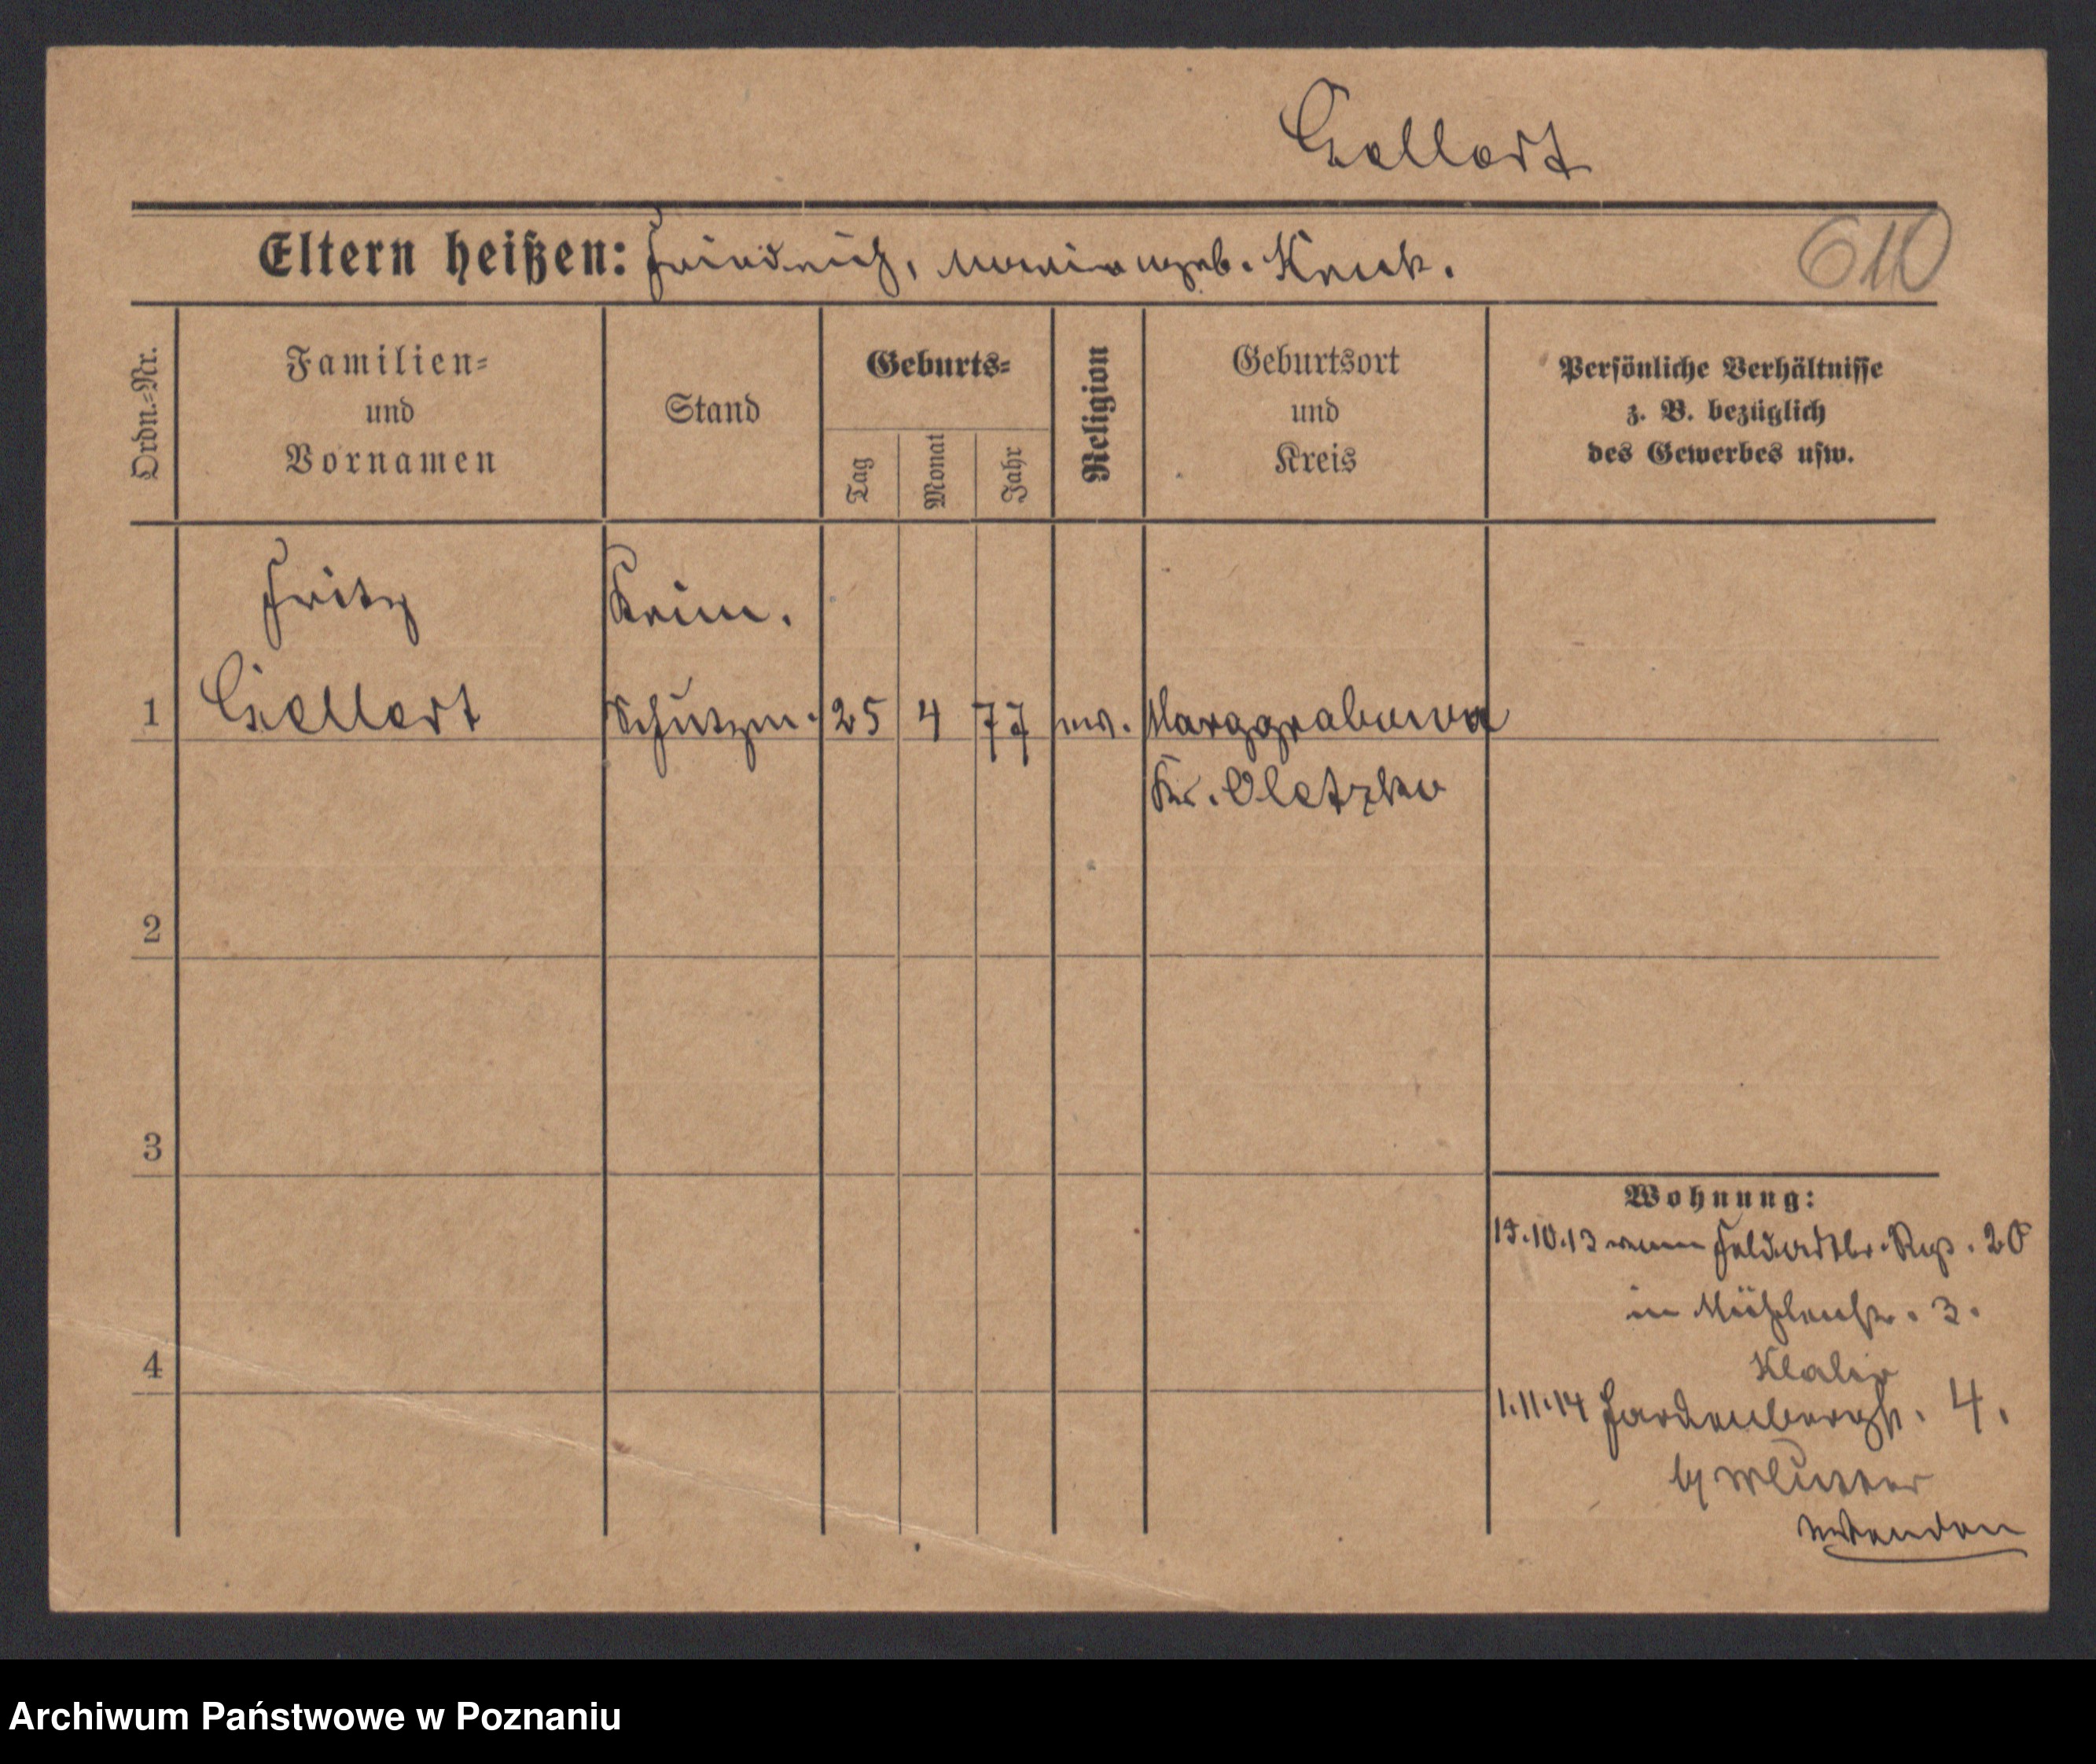 Gellert
Eltern heißen: Friedrich, Maria geb. Kruk.
610
Ordn.-Nr.
Familien-
und
Vornamen
Stand
Geburts-
Tag
Monat
Jahr
Religion
Geburtsort
und
Kreis
Persönliche Verhältnisse
z. B. bezüglich
des Gewerbes usw.
Fritz Krim.
1 Gellert Schutzm. 25 4 77 ev. Marggrabowa
Kr. Oletzko
2
3
4
Wohnung:
15.10.13 vom Feldartlr. Reg. 20
in Mühlenstr. 3.
1.11.14 Hardenbergstr. 4.
b/
Archiwum Państwowe w Poznaniu